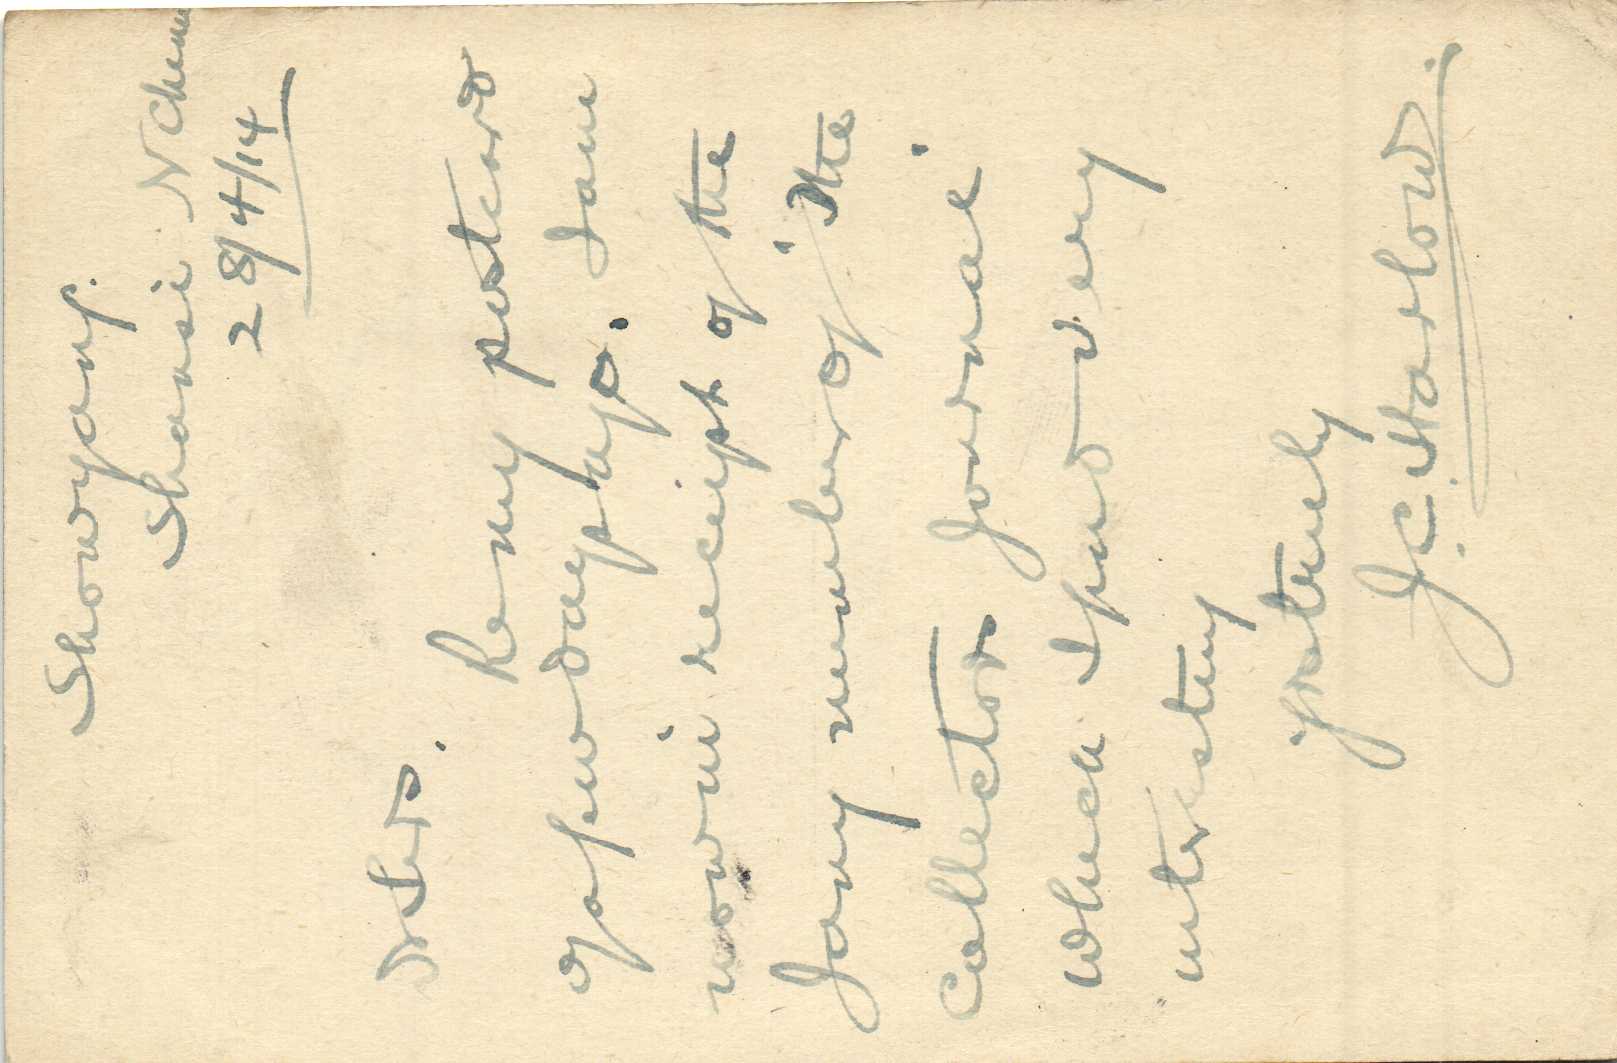 Showyang.
Shansi N China
28/4/14
D Sir.
Re my postcard
of a few days ago. I am
now in receipt of the
Jany number of the
Collectors Journal
which I find very
interesting
yrs truly
J. C. Harlow.